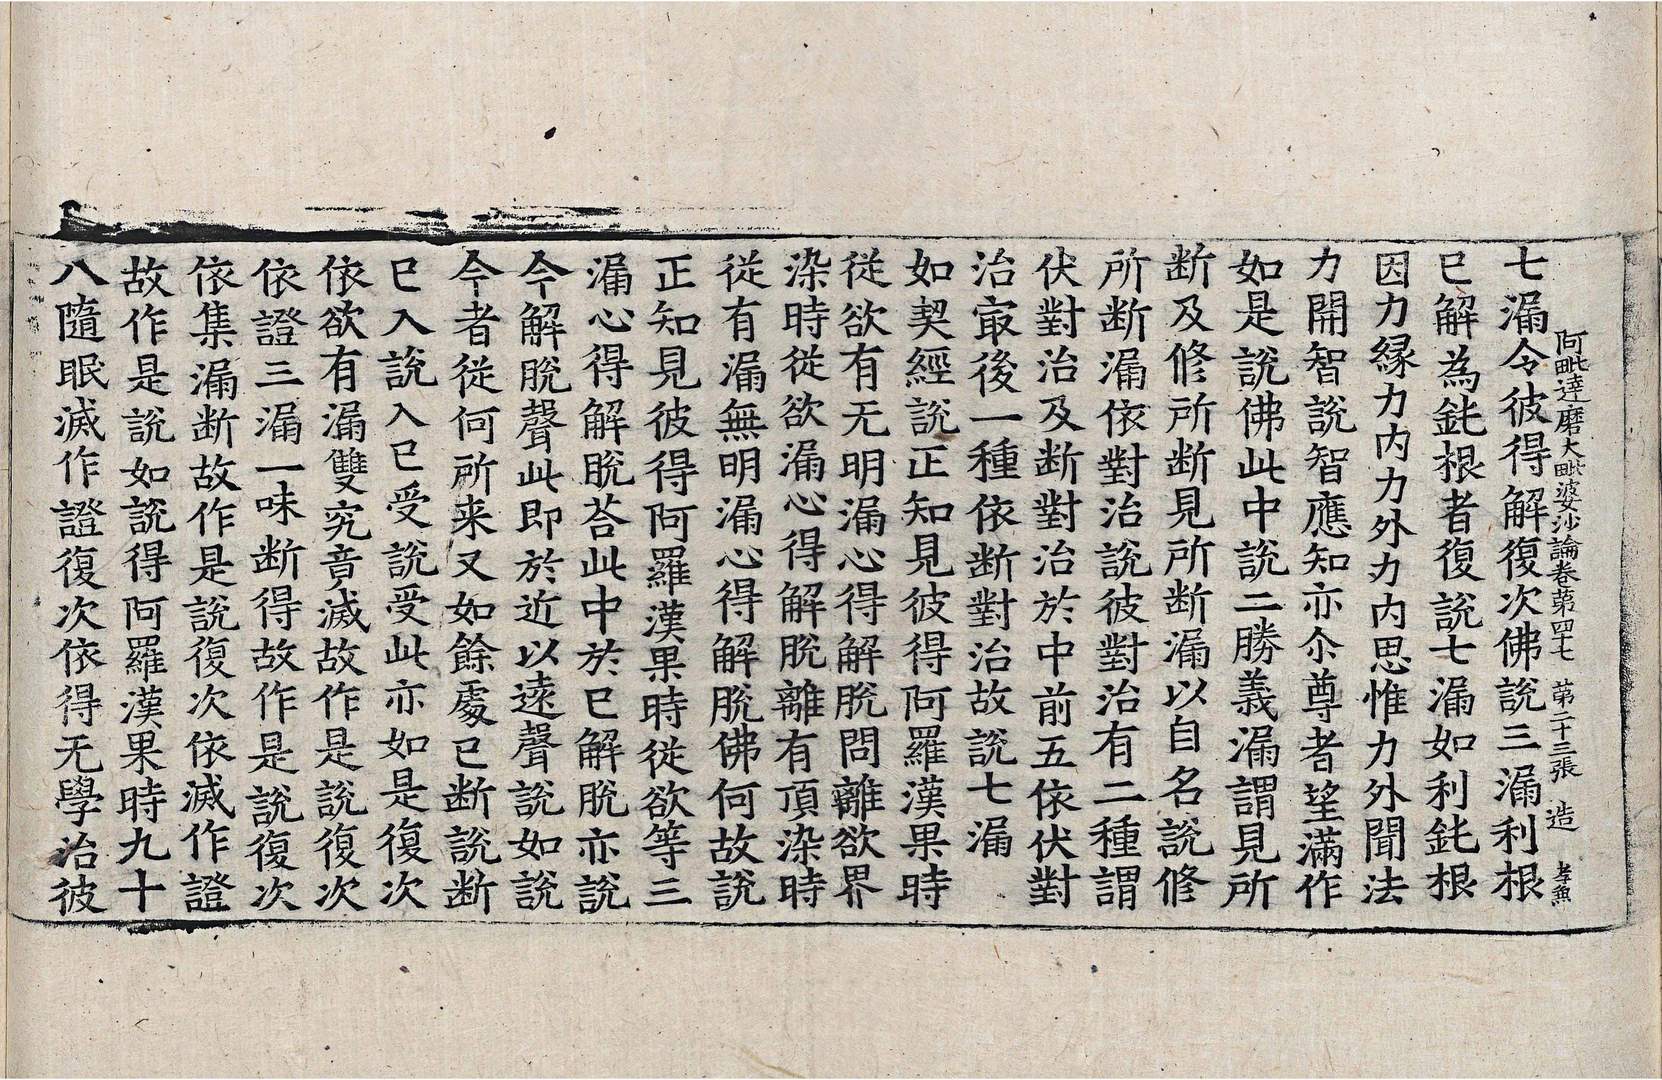 阿毗達磨大毗婆沙論卷苐四七 苐二十三張 造 孝魚
七漏令彼得解復次佛說三漏利根
已解為鈍根者復說七漏如利鈍根
因力緣力內力外力內思惟力外聞法
力開智說智應知亦尒尊者望滿作
如是說佛此中說二勝義漏謂見所
断及修所断見所断漏以自名說修
所断漏依對治說彼對治有二種謂
伏對治及断對治於中前五依伏對
治㝡後一種依断對治故說七漏
如契經說正知見彼得阿羅漢果時
從欲有无明漏心得解脫問離欲界
染時從欲漏心得解脫離有頂染時
從有漏無明漏心得解脫佛何故說
正知見彼得阿羅漢果時從欲等三
漏心得解脫荅此中於已解脫亦說
今解脫聲此即於近以遠聲說如說
今者從何所来又如餘處已断說断
已入說入已受說受此亦如是復次
依欲有漏雙究竟滅故作是說復次
依證三漏一味断得故作是說復次
依集漏断故作是說復次依滅作證
故作是說如說得阿羅漢果時九十
八隨眠滅作證復次依得无學治彼